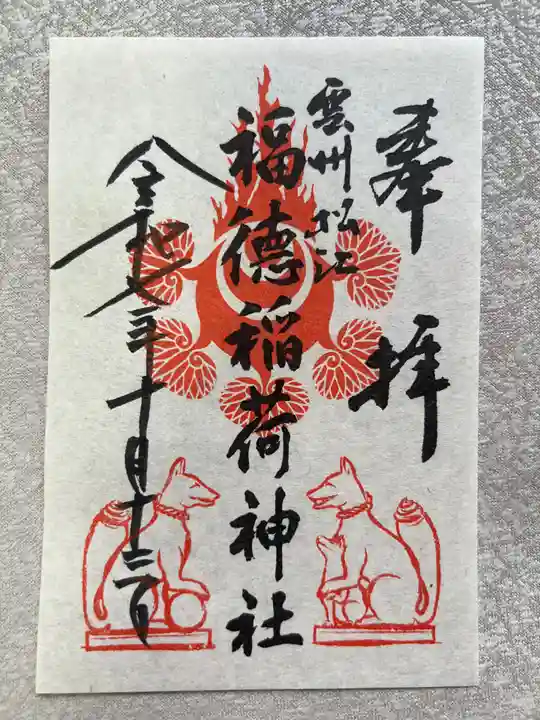 奉拝
雲州松江
福徳稲荷神社
令和七年十月十三日